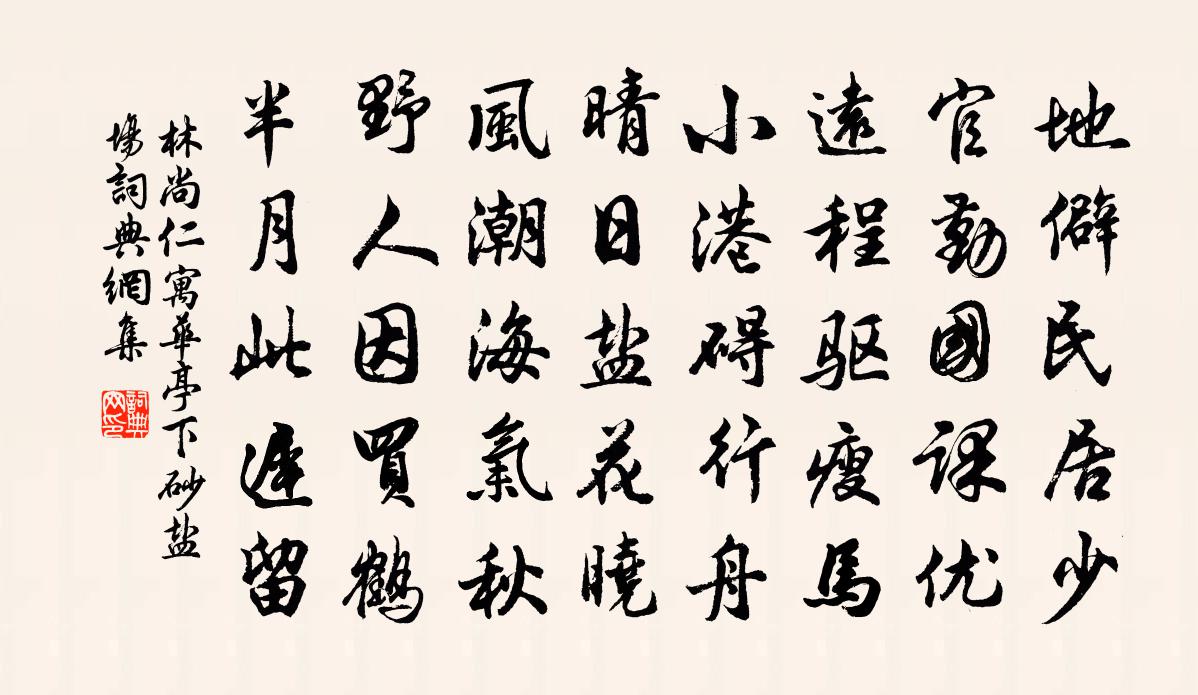 地僻民居少
官勤國課优
遠程驱瘦馬
小港碍行舟
晴日盐花曉
風潮海氣秋
野人因買鶴
半月此遲留
林尚仁寓華亭下砂盐
場詞典網集
詞典
网印